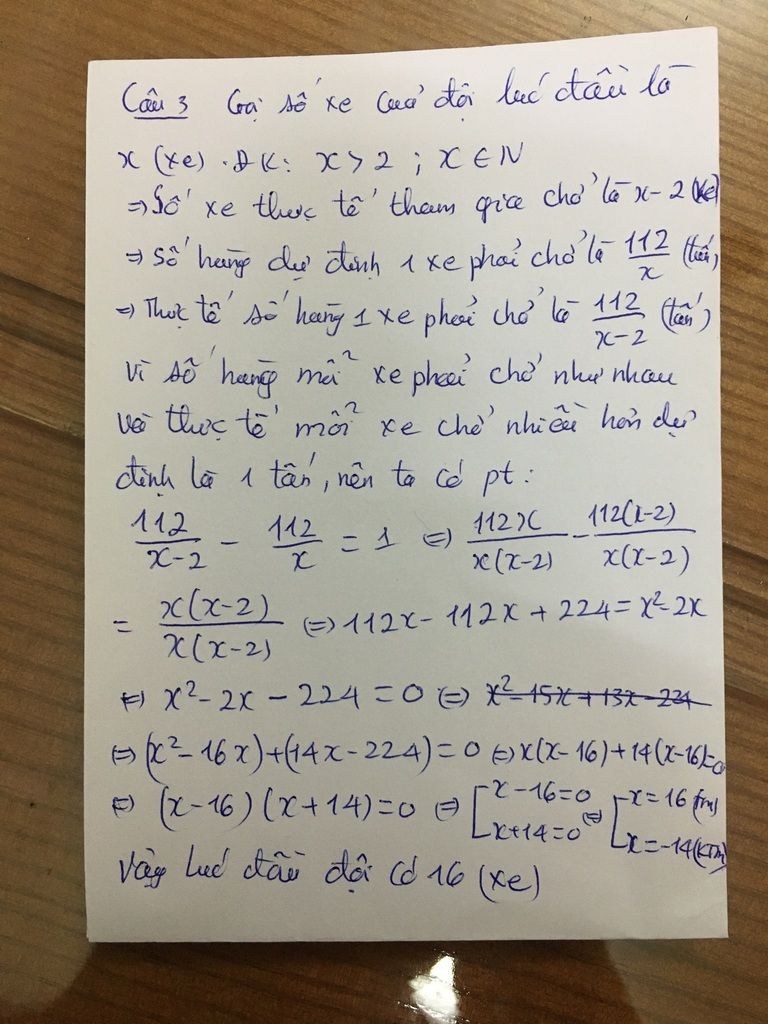 Câu 3 Gọi số xe của đội lúc đầu là
x (xe) . ĐK: x > 2 ; x ∈ N
⇒ Số xe thực tế tham gia chở là x - 2 (xe)
⇒ Số hàng dự định 1 xe phải chở là 112/x (tấn)
⇒ Thực tế số hàng 1 xe phải chở là 112/(x-2) (tấn)
Vì số hàng mỗi xe phải chở như nhau
và thực tế mỗi xe chở nhiều hơn dự
định là 1 tấn, nên ta có pt:
112/(x-2) - 112/x = 1 ⇔ 112x/(x(x-2)) - 112(x-2)/(x(x-2))
= x(x-2)/(x(x-2)) ⇔ 112x - 112x + 224 = x² - 2x
⇔ x² - 2x - 224 = 0 ⇔ x² - 15x + 13x - 224
⇔ (x² - 16x) + (14x - 224) = 0 ⇔ x(x-16) + 14(x-16) = 0
⇔ (x-16)(x+14) = 0 ⇔ [x - 16 = 0 ⇔ [x = 16 (tm)
x + 14 = 0 x = -14 (KTM)
Vậy lúc đầu đội có 16 (xe)